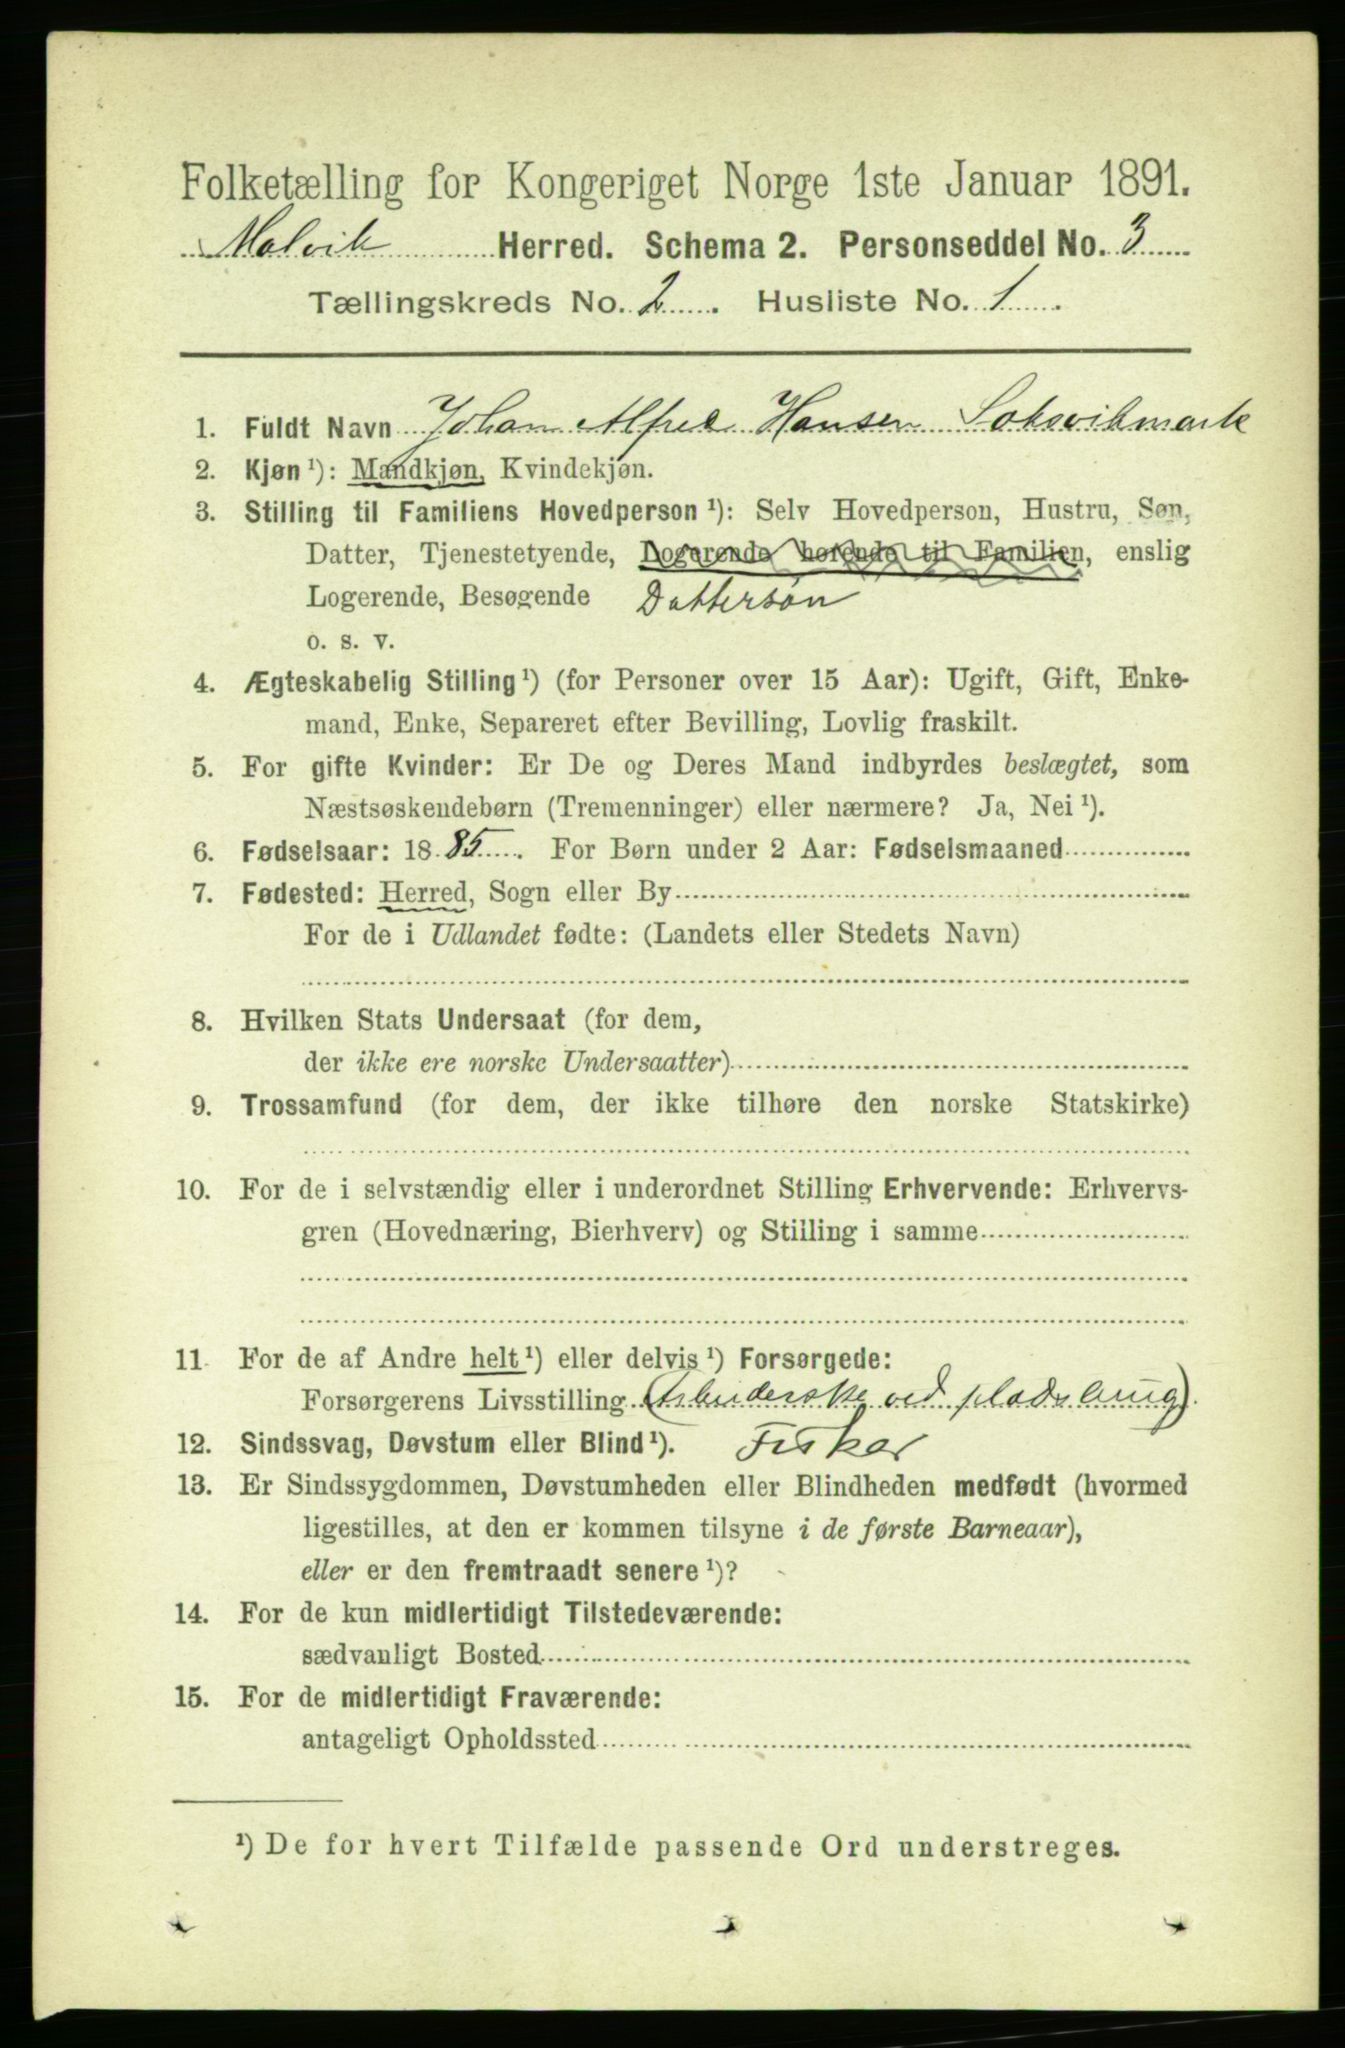 Folketælling for Kongeriget Norge 1ste Januar 1891.
Malvik Herred. Schema 2. Personseddel No. 3
Tællingskreds No. 2. Husliste No. 1.
1. Fuldt Navn Johan Alfred Hansen Saksvikmark
2. Kjøn ¹): Mandkjøn, Kvindekjøn.
3. Stilling til Familiens Hovedperson ¹): Selv Hovedperson, Hustru, Søn,
Datter, Tjenestetyende, Logerende hørende til Familien, enslig
Logerende, Besøgende Dattersøn
o. s. v.
4. Ægteskabelig Stilling ¹) (for Personer over 15 Aar): Ugift, Gift, Enke-
mand, Enke, Separeret efter Bevilling, Lovlig fraskilt.
5. For gifte Kvinder: Er De og Deres Mand indbyrdes beslægtet, som
Næstsøskendebørn (Tremenninger) eller nærmere? Ja, Nei ¹).
6. Fødselsaar: 1885. For Børn under 2 Aar: Fødselsmaaned
7. Fødested: Herred, Sogn eller By
For de i Udlandet fødte: (Landets eller Stedets Navn)
8. Hvilken Stats Undersaat (for dem,
der ikke ere norske Undersaatter)
9. Trossamfund (for dem, der ikke tilhøre den norske Statskirke)
10. For de i selvstændig eller i underordnet Stilling Erhvervende: Erhvervs-
gren (Hovednæring, Bierhverv) og Stilling i samme
11. For de af Andre helt ¹) eller delvis ¹) Forsørgede:
Forsørgerens Livsstilling (Arbeiderske ved pladsbrug).
12. Sindssvag, Døvstum eller Blind ¹). Fisker
13. Er Sindssygdommen, Døvstumheden eller Blindheden medfødt (hvormed
ligestilles, at den er kommen tilsyne i de første Barneaar),
eller er den fremtraadt senere ¹)?
14. For de kun midlertidigt Tilstedeværende:
sædvanligt Bosted
15. For de midlertidigt Fraværende:
antageligt Opholdssted
¹) De for hvert Tilfælde passende Ord understreges.